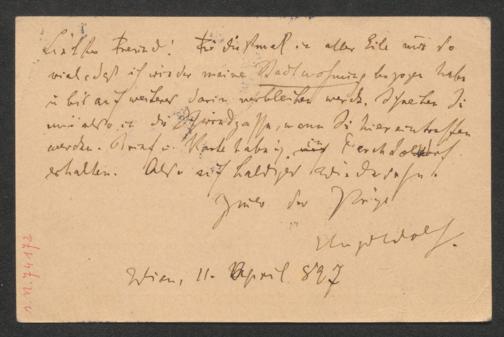 Liebster Freund! Für diesmal in aller Eile nur so
viel, daß ich wieder meine Stadtwohnung bezogen habe
u. bis auf weiteres darin verbleiben werde. Schreiben Sie
mir also in die Schwindgasse, wann Sie hier eintreffen
werden. Brief u. Karte habe ich in Perchtoldsdorf
erhalten. Also auf baldiges Wiedersehn!
Ihr
Hugo Wolf.
Wien, 11. April 897
s.N. 74172